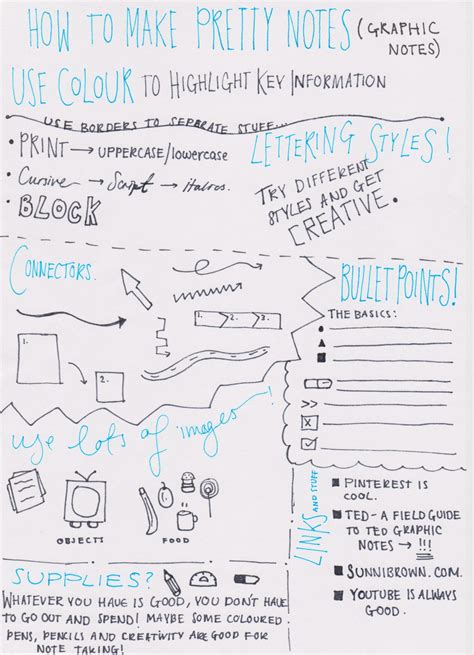 HOW TO MAKE PRETTY NOTES (GRAPHIC NOTES)
USE COLOUR TO HIGHLIGHT KEY INFORMATION
USE BORDERS TO SEPERATE STUFF...
• PRINT → UPPERCASE/lowercase
• Cursive → Script → italics.
• BLOCK
LETTERING STYLES!
TRY DIFFERENT
STYLES AND GET
CREATIVE.
CONNECTORS.
1.
2.
1.
2.
3.
BULLET POINTS!
THE BASICS:
>>
use lots of images!
OBJECTS
FOOD
LINKS AND STUFF
■ PINTEREST IS
COOL.
■ TED - A FIELD GUIDE
TO TED GRAPHIC
NOTES → !!!
■ SUNNIBROWN.COM.
■ YOUTUBE IS ALWAYS
GOOD.
SUPPLIES?
WHATEVER YOU HAVE IS GOOD, YOU DON'T HAVE
TO GO OUT AND SPEND! MAYBE SOME COLOURED
PENS, PENCILS AND CREATIVITY ARE GOOD FOR
NOTE TAKING!